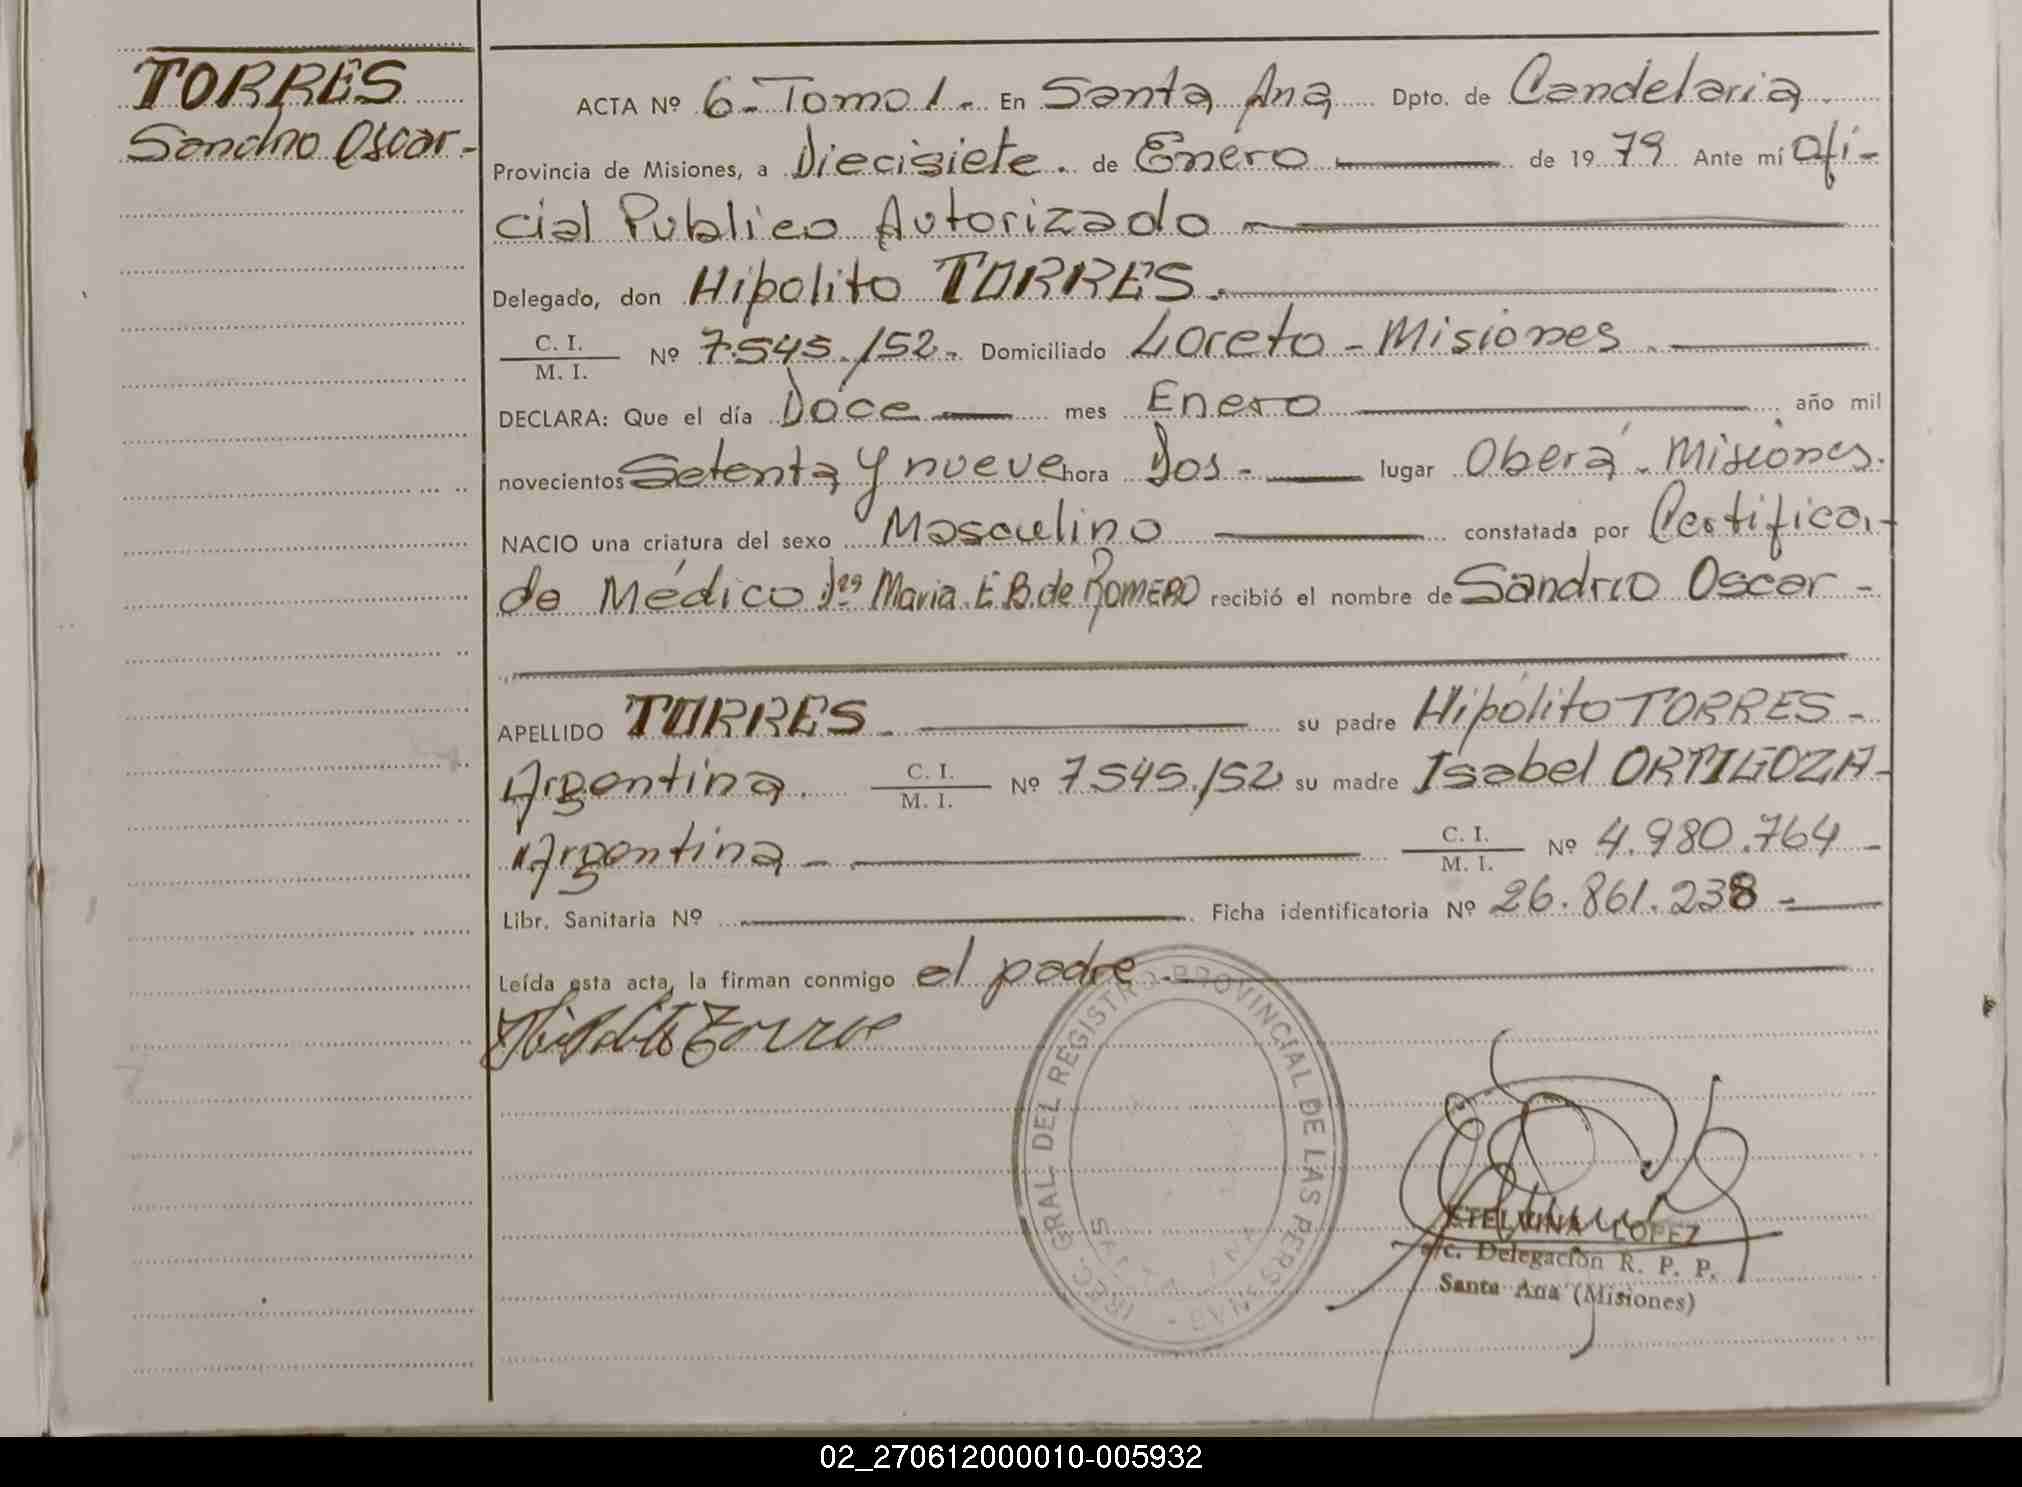 TORRES
Sandro Oscar-
ACTA Nº 6-Tomo 1.- En Santa Ana Dpto. de Candelaria
Provincia de Misiones, a Diecisiete. de Enero de 1979 Ante mí Ofi-
cial Publico Autorizado
Delegado, don Hipolito TORRES.
C. I. / M. I. Nº 7.545./52- Domiciliado Loreto - Misiones
DECLARA: Que el día Doce mes Enero año mil
novecientos Setenta y nueve hora Dos- lugar Oberá - Misiones.
NACIO una criatura del sexo Masculino constatada por Certifica-
do Médico Dra Maria E. B. de ROMERO recibió el nombre de Sandro Oscar -
APELLIDO TORRES. su padre Hipólito TORRES -
Argentina. C. I. / M. I. Nº 7545./52 su madre Isabel ORTIGOZA-
Argentina - C. I. / M. I. Nº 4.980.764 -
Libr. Sanitaria Nº Ficha identificatoria Nº 26.861.238 -
Leída esta acta, la firman conmigo el padre -
Hipolito Torres
DIREC. GRAL. DEL REGISTRO PROVINCIAL DE LAS PERSONAS -
SANTA ANA
LOPEZ
c/c. Delegación R. P. P.
Santa Ana (Misiones)
02_270612000010-005932